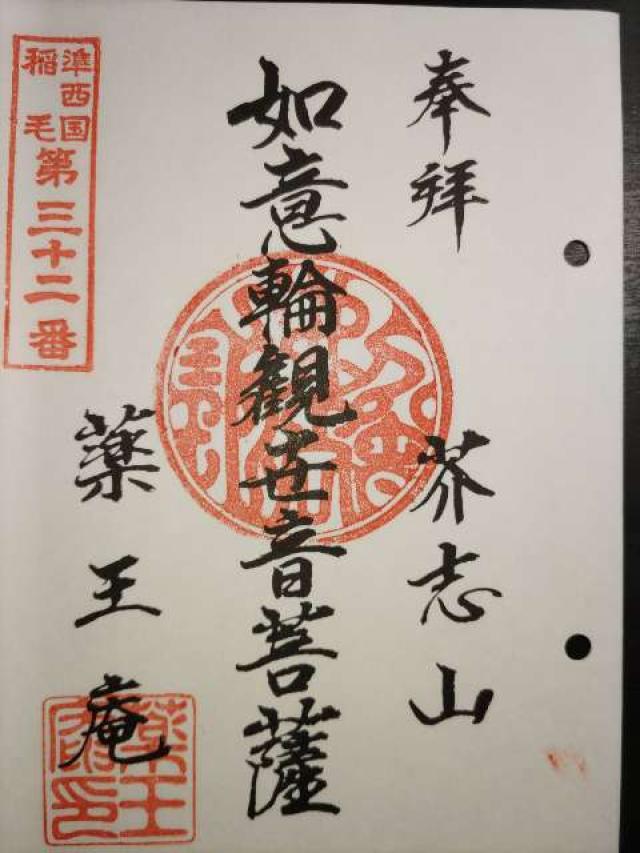 奉拝
芥志山
如意輪観世音菩薩
準西国
稲毛
第三十二番
薬王庵
薬王
庵印